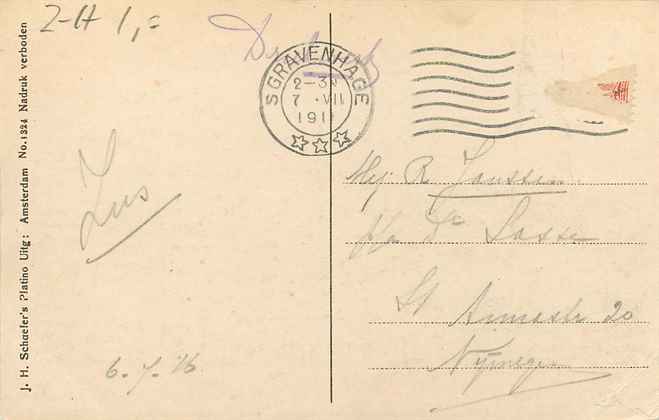 Z-H 1,=
'S GRAVENHAGE
2-3
7 .VII
191
J. H. Schaefer's Platino Uitg: Amsterdam No. 1324 Nadruk verboden
Zus
6.7.'16
R Janssen
St Annastr 20
Nijmegen